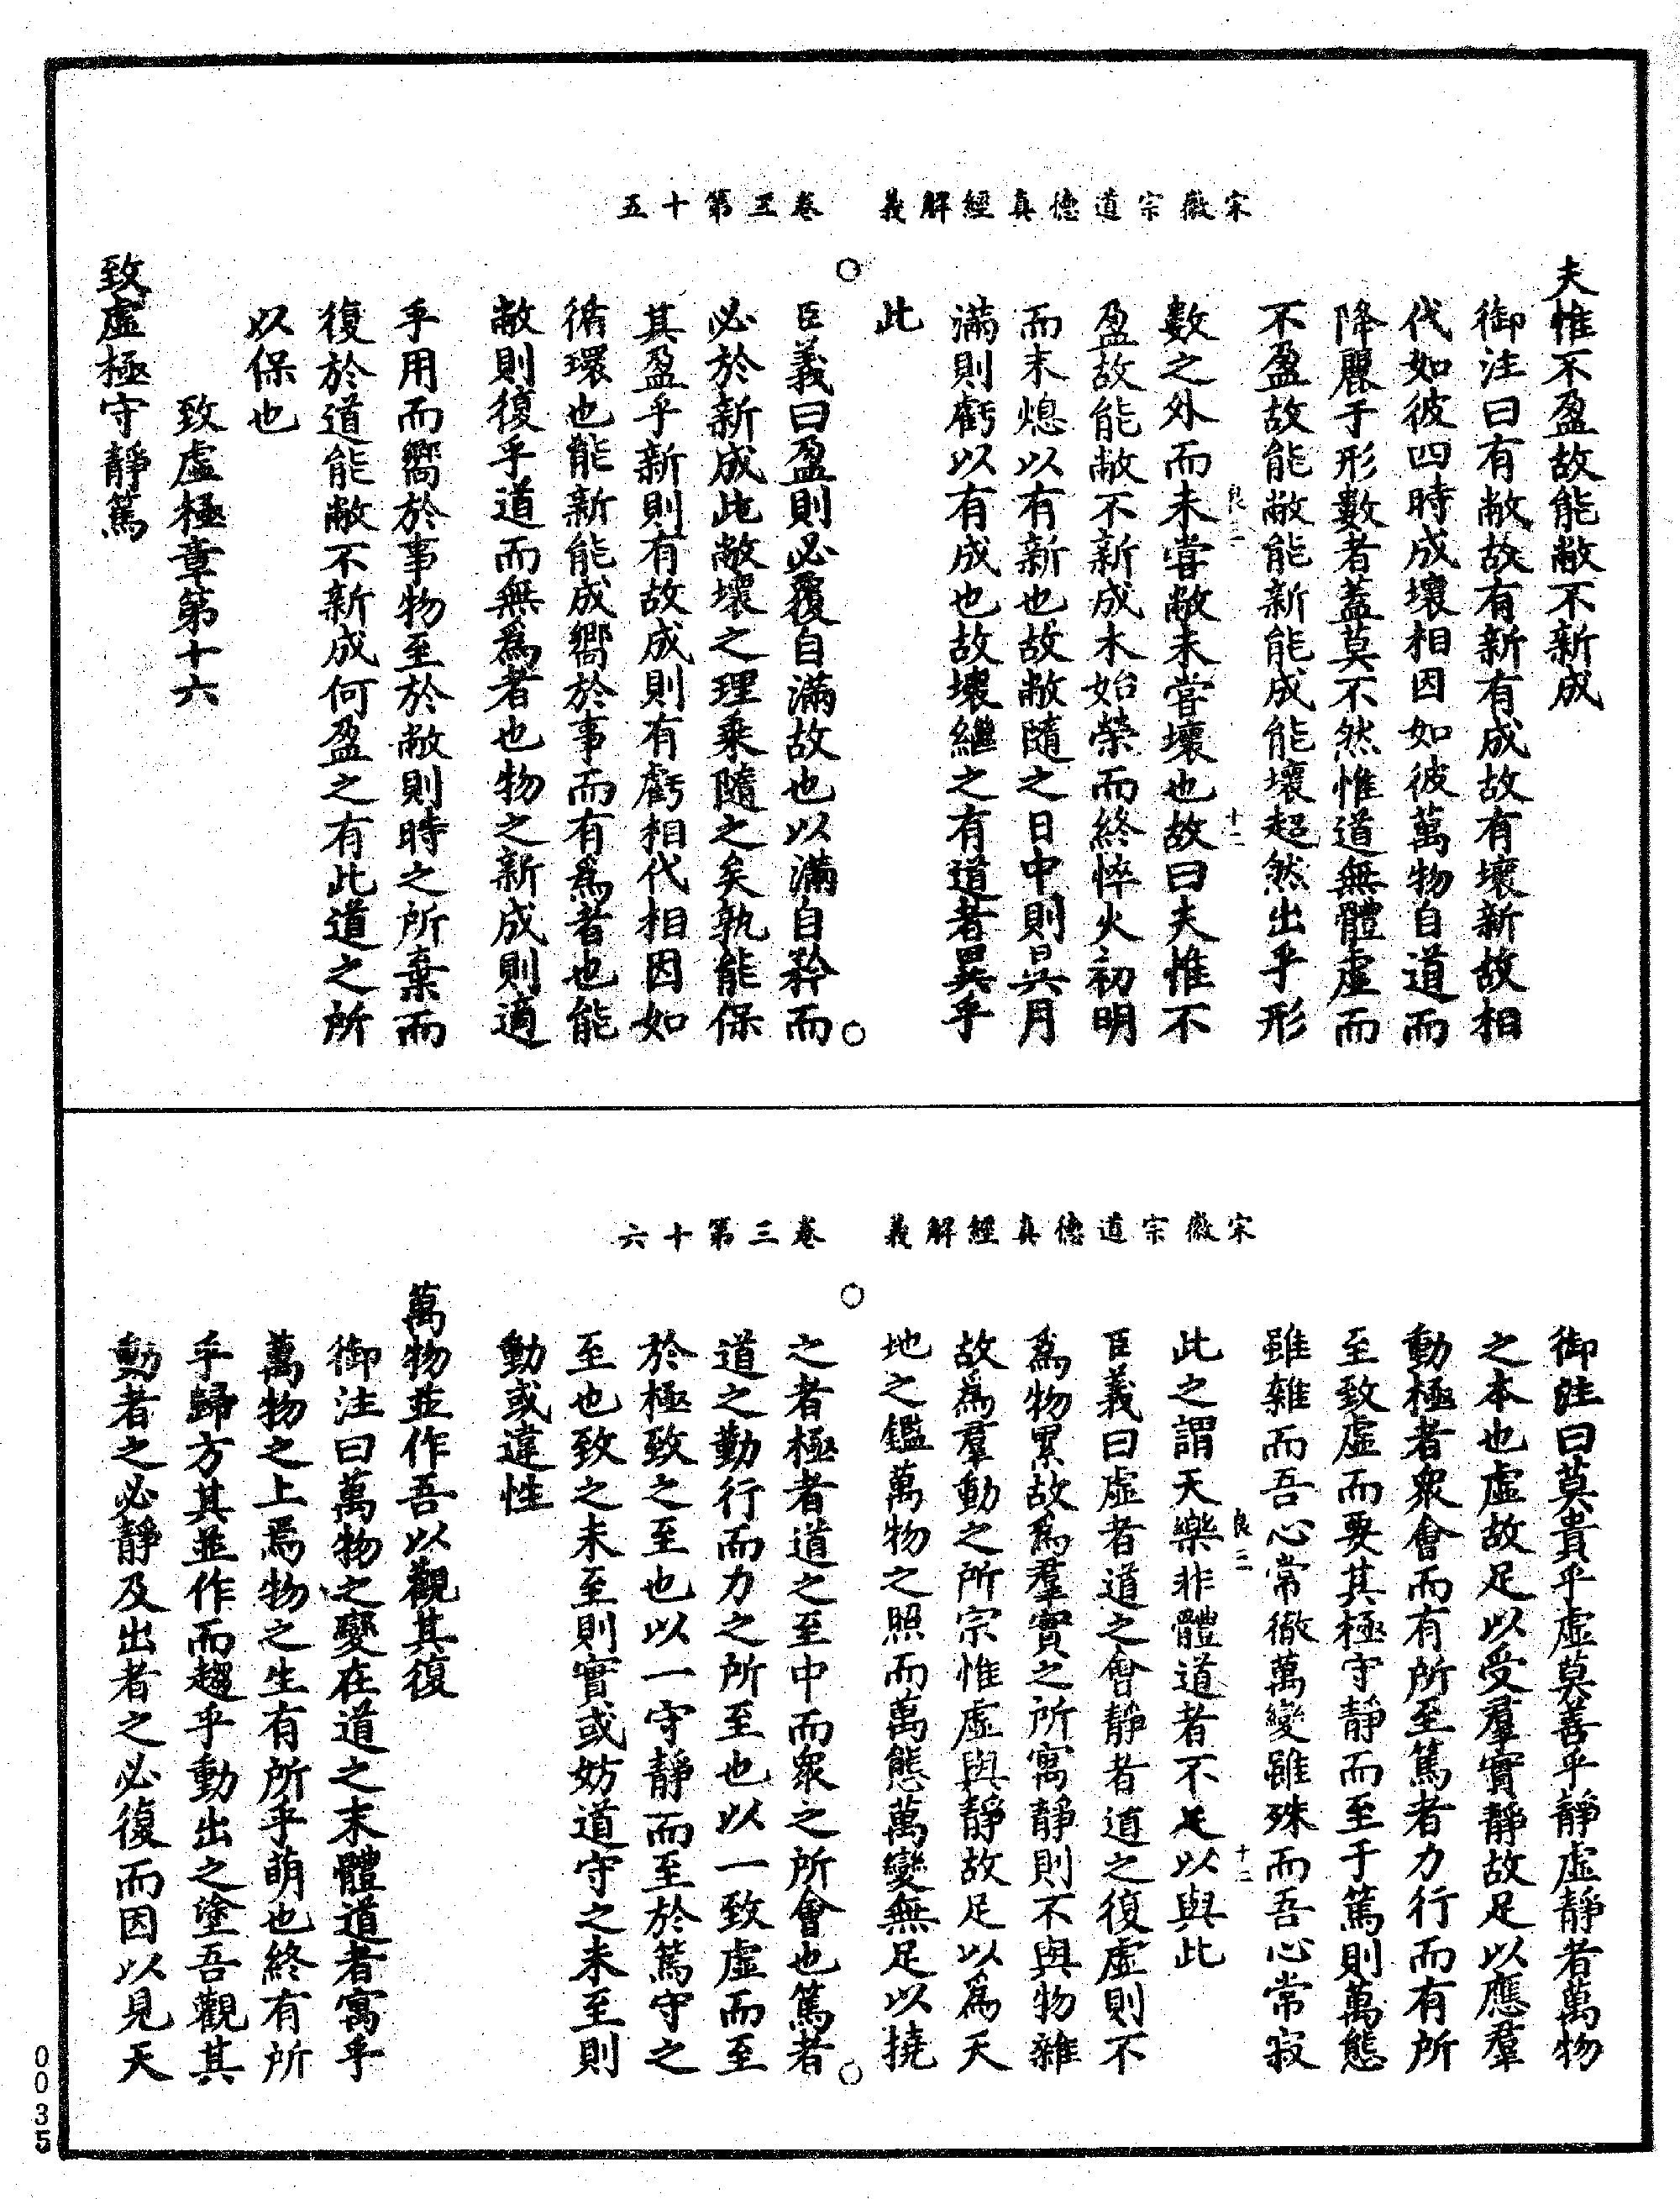 宋徽宗道德真經解義　卷三第十五
夫惟不盈故能敝不新成
御注曰有敝故有新有成故有壞新故相
代如彼四時成壞相因如彼萬物自道而
降麗于形數者蓋莫不然惟道無體虛而
不盈故能敝能新能成能壞超然出乎形
良三　十二
數之外而未嘗敝未嘗壞也故曰夫惟不
盈故能敝不新成木始榮而終悴火初明
而末熄以有新也故敝隨之日中則昃月
滿則虧以有成也故壞繼之有道者異乎
此
臣義曰盈則必覆自滿故也以滿自矜而
必於新成此敝壞之理乘隨之矣孰能保
其盈乎新則有故成則有虧相代相因如
循環也能新能成嚮於事而有為者也能
敝則復乎道而無為者也物之新成則適
乎用而嚮於事物至於敝則時之所棄而
復於道能敝不新成何盈之有此道之所
以保也
致虛極章第十六
致虛極守靜篤
宋徽宗道德真經解義　卷三第十六
御注曰莫貴乎虛莫善乎靜虛靜者萬物
之本也虛故足以受羣實靜故足以應羣
動極者衆會而有所至篤者力行而有所
至致虛而要其極守靜而至于篤則萬態
雖雜而吾心常徹萬變雖殊而吾心常寂
良三　十二
此之謂天樂非體道者不足以與此
臣義曰虛者道之會靜者道之復虛則不
為物累故為羣實之所寓靜則不與物雜
故為羣動之所宗惟虛與靜故足以為天
地之鑑萬物之照而萬態萬變無足以撓
之者極者道之至中而衆之所會也篤者
道之勤行而力之所至也以一致虛而至
於極致之至也以一守靜而至於篤守之
至也致之未至則實或妨道守之未至則
動或違性
萬物並作吾以觀其復
御注曰萬物之變在道之末體道者寓乎
萬物之上焉物之生有所乎萌也終有所
乎歸方其並作而趨乎動出之塗吾觀其
動者之必靜及出者之必復而因以見天
0035